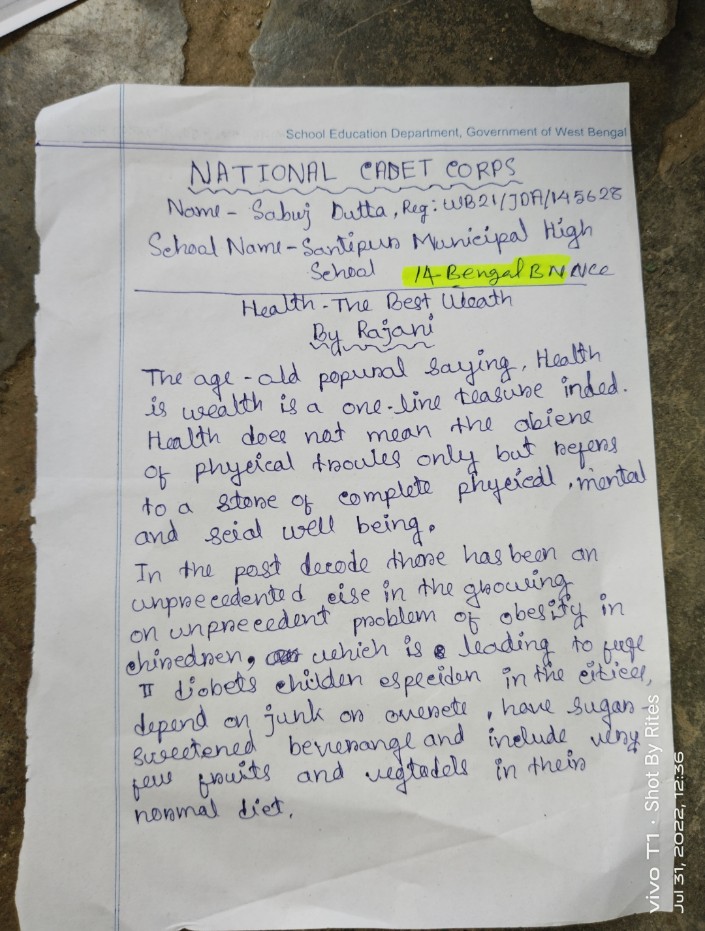 School Education Department, Government of West Bengal
NATIONAL CADET CORPS
Name - Sabuj Dutta, Reg: WB21/JDA/145628
School Name - Santipur Municipal High
School 14 Bengal BN NCC
Health - The Best Weath
By Rajani
The age-old popunal saying, Health
is wealth is a one-line teasure inded.
Health does not mean the abiene
of physical troules only but refers
to a store of complete physicall, mental
and seial well being.
In the past decode there has been an
unprecedented eise in the growing
on unpreecedent problem of obesity in
chinedren, which is leading to fuge
II diobets childen especiden in the citiees,
depend on junk or overete, have sugar
sweetened beverange and include very
few fruits and vegtadels in their
normal diet.
vivo T1 · Shot By Rites
Jul 31, 2022, 12:36